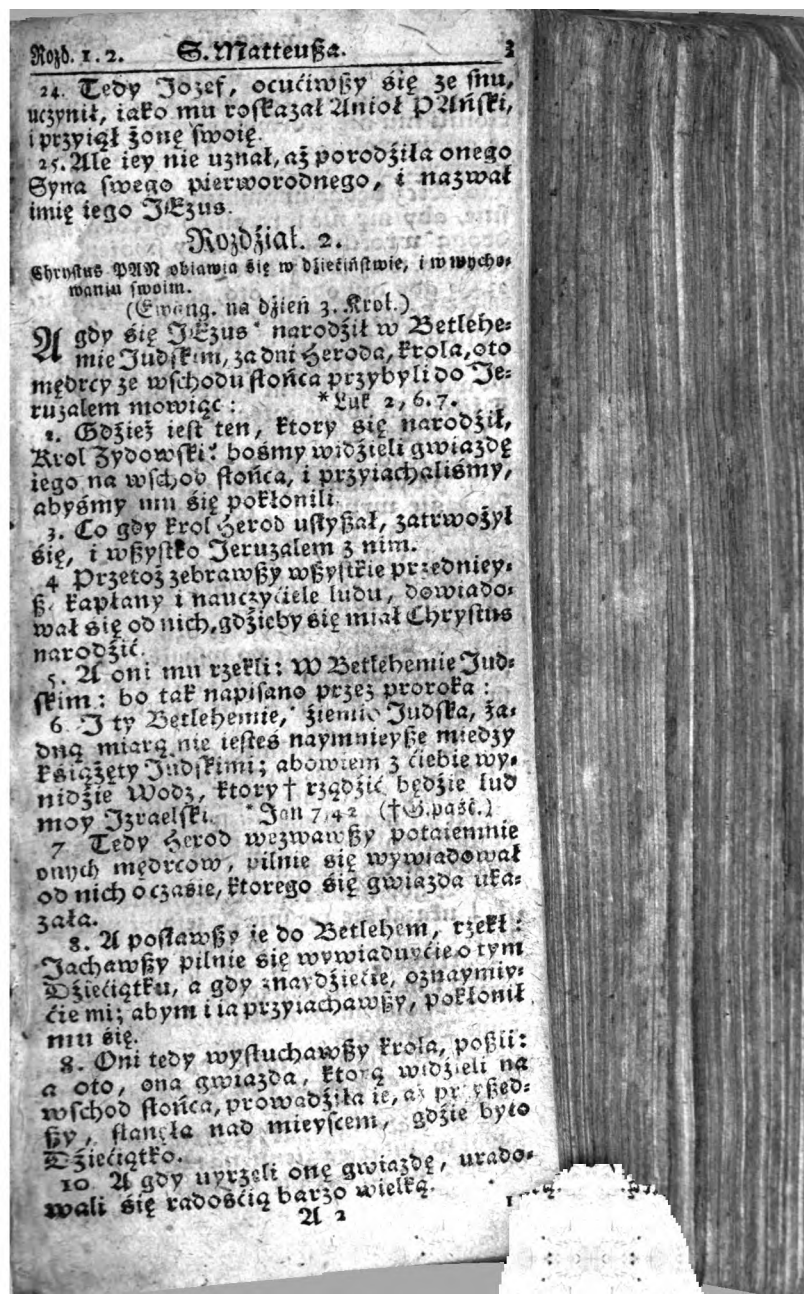 Rozd. 1. 2. S. Matteußa. 3
24. Tedy Jozef, ocućiwßy się ze snu,
uczynił, iako mu roskazał Anioł PAński,
i przyiął żonę swoię.
25. Ale iey nie uznał, aż porodźiła onego
Syna swego pierworodnego, i nazwał
imię iego JEzus.
Rozdźiał. 2.
Chrystus PAN obiawia się w dźiećiństwie, i w wycho-
waniu swoim.
(Ewang. na dźień 3. Krol.)
A gdy się JEzus* narodźił w Betlehe-
mie Judskim, za dni Heroda, krola, oto
mędrcy ze wschodu słońca przybyli do Je-
ruzalem mowiąc: *Luk 2, 6. 7.
2. Gdźież iest ten, ktory się narodźił,
Krol Zydowski? bośmy widźieli gwiazdę
iego na wschod słońca, i przyiachaliśmy,
abyśmy mu się pokłonili.
3. Co gdy krol Herod usłyßał, zatrwożył
się, i wßystko Jeruzalem z nim.
4 Przetoż zebrawßy wßystkie przedniey-
kapłany i nauczyćiele ludu, dowiado-
wał się od nich, gdźieby się miał Chrystus
narodźić.
5. A oni mu rzekli: W Betlehemie Jud-
skim: bo tak napisano przez proroka:
6. J ty Betlehemie,* źiemio Judska, ża-
dną miarą nie iesteś naymnieyße miedzy
książęty Judskimi; abowiem z ćiebie wy-
nidźie Wodz, ktory † rządźić będźie lud
moy Jzraelski. *Jan 7, 42 (†G. paść.)
7. Tedy Herod wezwawßy potaiemnie
onych mędrcow, pilnie się wywiadował
od nich o czasie, ktorego się gwiazda uka-
zała.
8. A posławßy ie do Betlehem, rzekł:
Jachawßy pilnie się wywiaduyćie o tym
Dźiećiątku, a gdy znaydźiećie, oznaymiy-
ćie mi; abym i ia przyiachawßy, pokłonił
mu się.
8. Oni tedy wysłuchawßy krola, poßli:
a oto, ona gwiazda, ktorą widźieli na
wschod słońca, prowadźiła ie, aż przyßed-
ßy, stanęła nad mieyscem, gdźie było
Dźiećiątko.
10 A gdy uyrzeli onę gwiazdę, urado-
wali się radośćią barzo wielką.
A 2